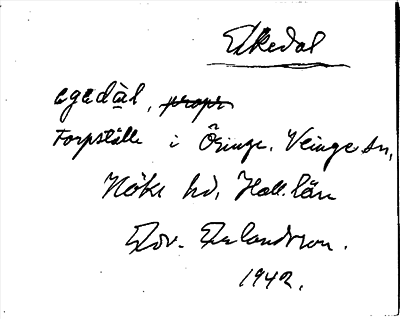 Ekedal
egedàl, propr
Torpställe i Öringe, Veinge sn,
Höks hd, Hall. län
Edv. Erlandsson.
1942.